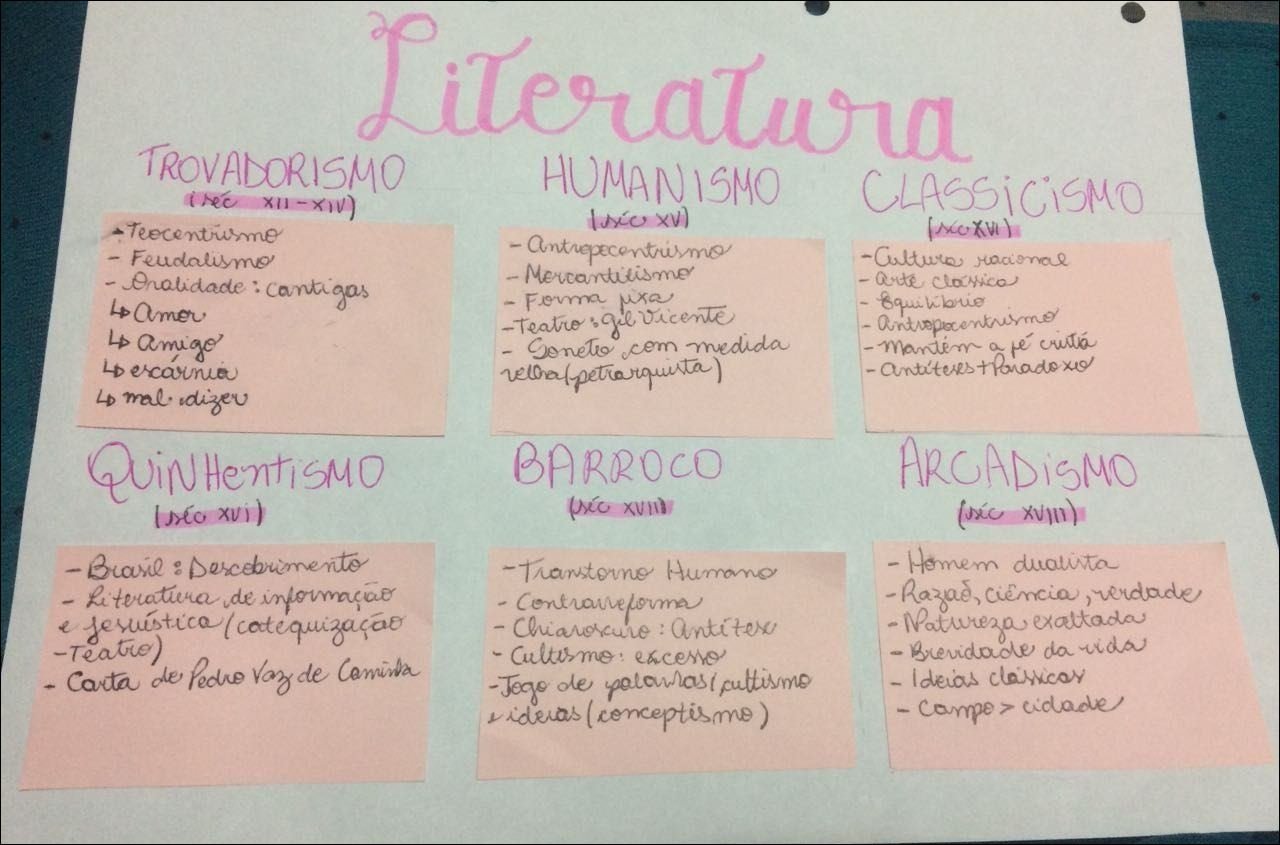 Literatura
TROVADORISMO
(séc XII-XIV)
- Teocentrismo
- Feudalismo
- Oralidade: cantigas
↳ Amor
↳ Amigo
↳ escárnia
↳ mal dizer
HUMANISMO
(séc XV)
- Antropocentrismo
- Mercantilismo
- Forma fixa
- Teatro: Gil Vicente
- Soneto com medida
velha (petrarquista)
CLASSICISMO
(séc XVI)
- Cultura racional
- Arte clássica
- Equilíbrio
- Antropocentrismo
- Mantém a fé cristã
- Antíteses + Paradoxo
QUINHENTISMO
(séc XVI)
- Brasil: Descobrimento
- Literatura de informação
e jesuística (catequização
- Teatro)
- Carta de Pedro Vaz de Caminha
BARROCO
(séc XVII)
- Transtorno Humano
- Contrarreforma
- Chiaroscuro: Antítese
- Cultismo: excesso
- Jogo de palavras (cultismo
e ideias (conceptismo)
ARCADISMO
(séc XVIII)
- Homem dualista
- Razão, ciência, verdade
- Natureza exaltada
- Brevidade da vida
- Ideias clássicas
- Campo > cidade